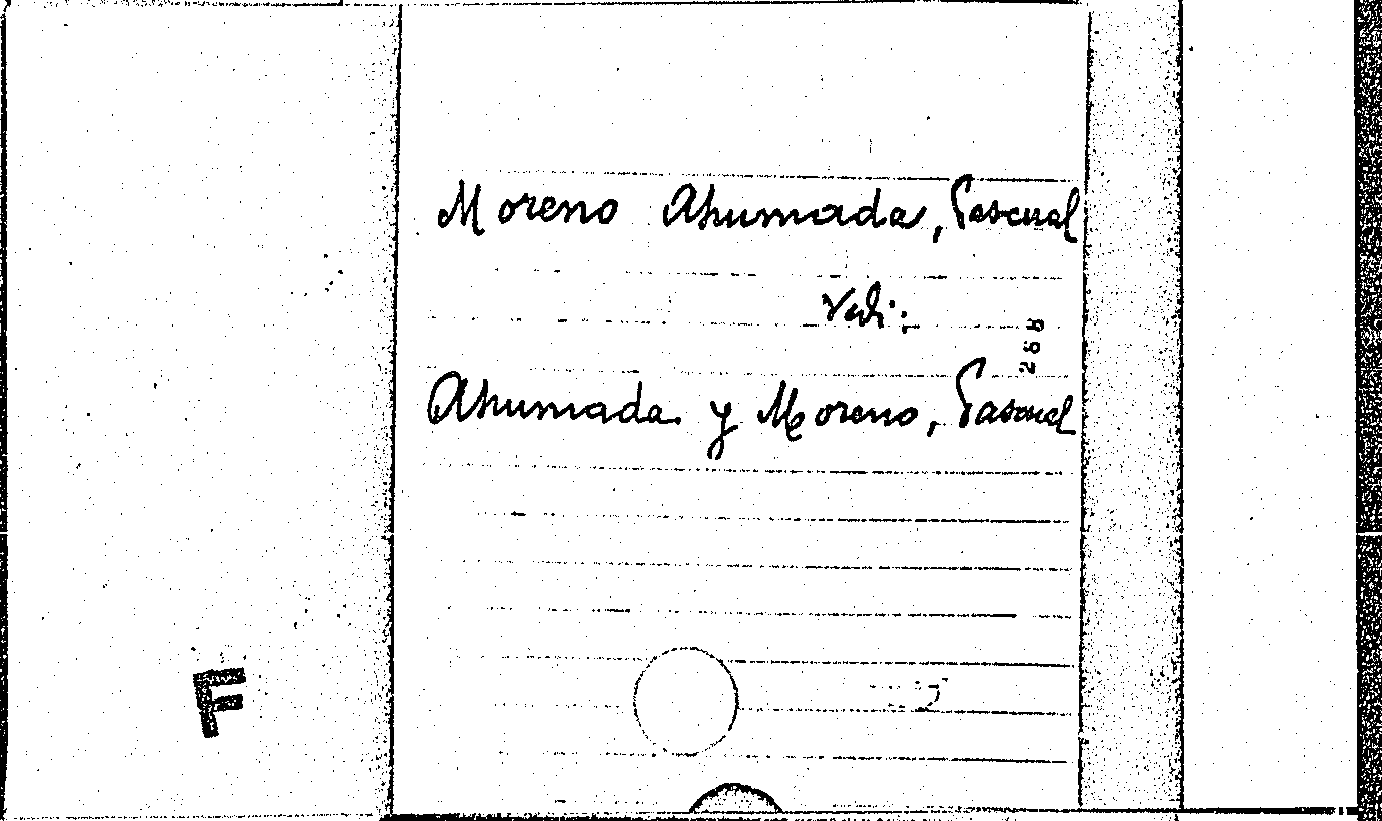 Moreno Ahumada, Pascual
Vedi:
268
Ahumada y Moreno, Pascual
F